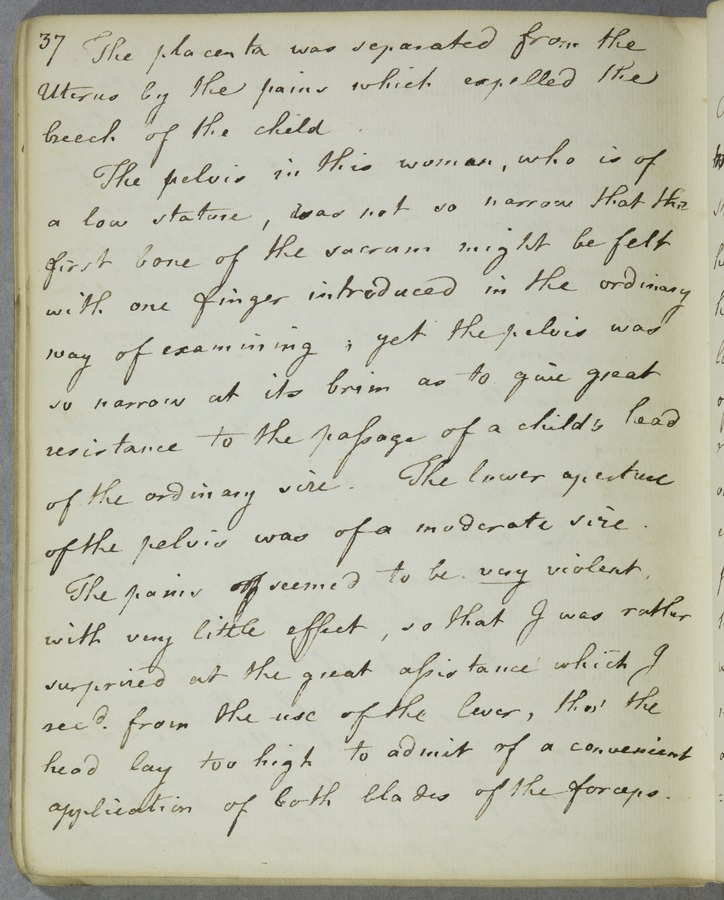 37 The placenta was separated from the
Uterus by the pains which expelled the
breech of the child.
The pelvis in this woman, who is of
a low stature, was not so narrow that the
first bone of the sacrum might be felt
with one finger introduced in the ordinary
way of examining; yet the pelvis was
so narrow at its brim as to give great
resistance to the passage of a child's head
of the ordinary size. The lower aperture
of the pelvis was of a moderate size.
The pains seemed to be very violent,
with very little effect, so that I was rather
surprized at the great assistance which I
rec'd. from the use of the lever, tho' the
head lay too high to admit of a convenient
application of both blades of the forceps.